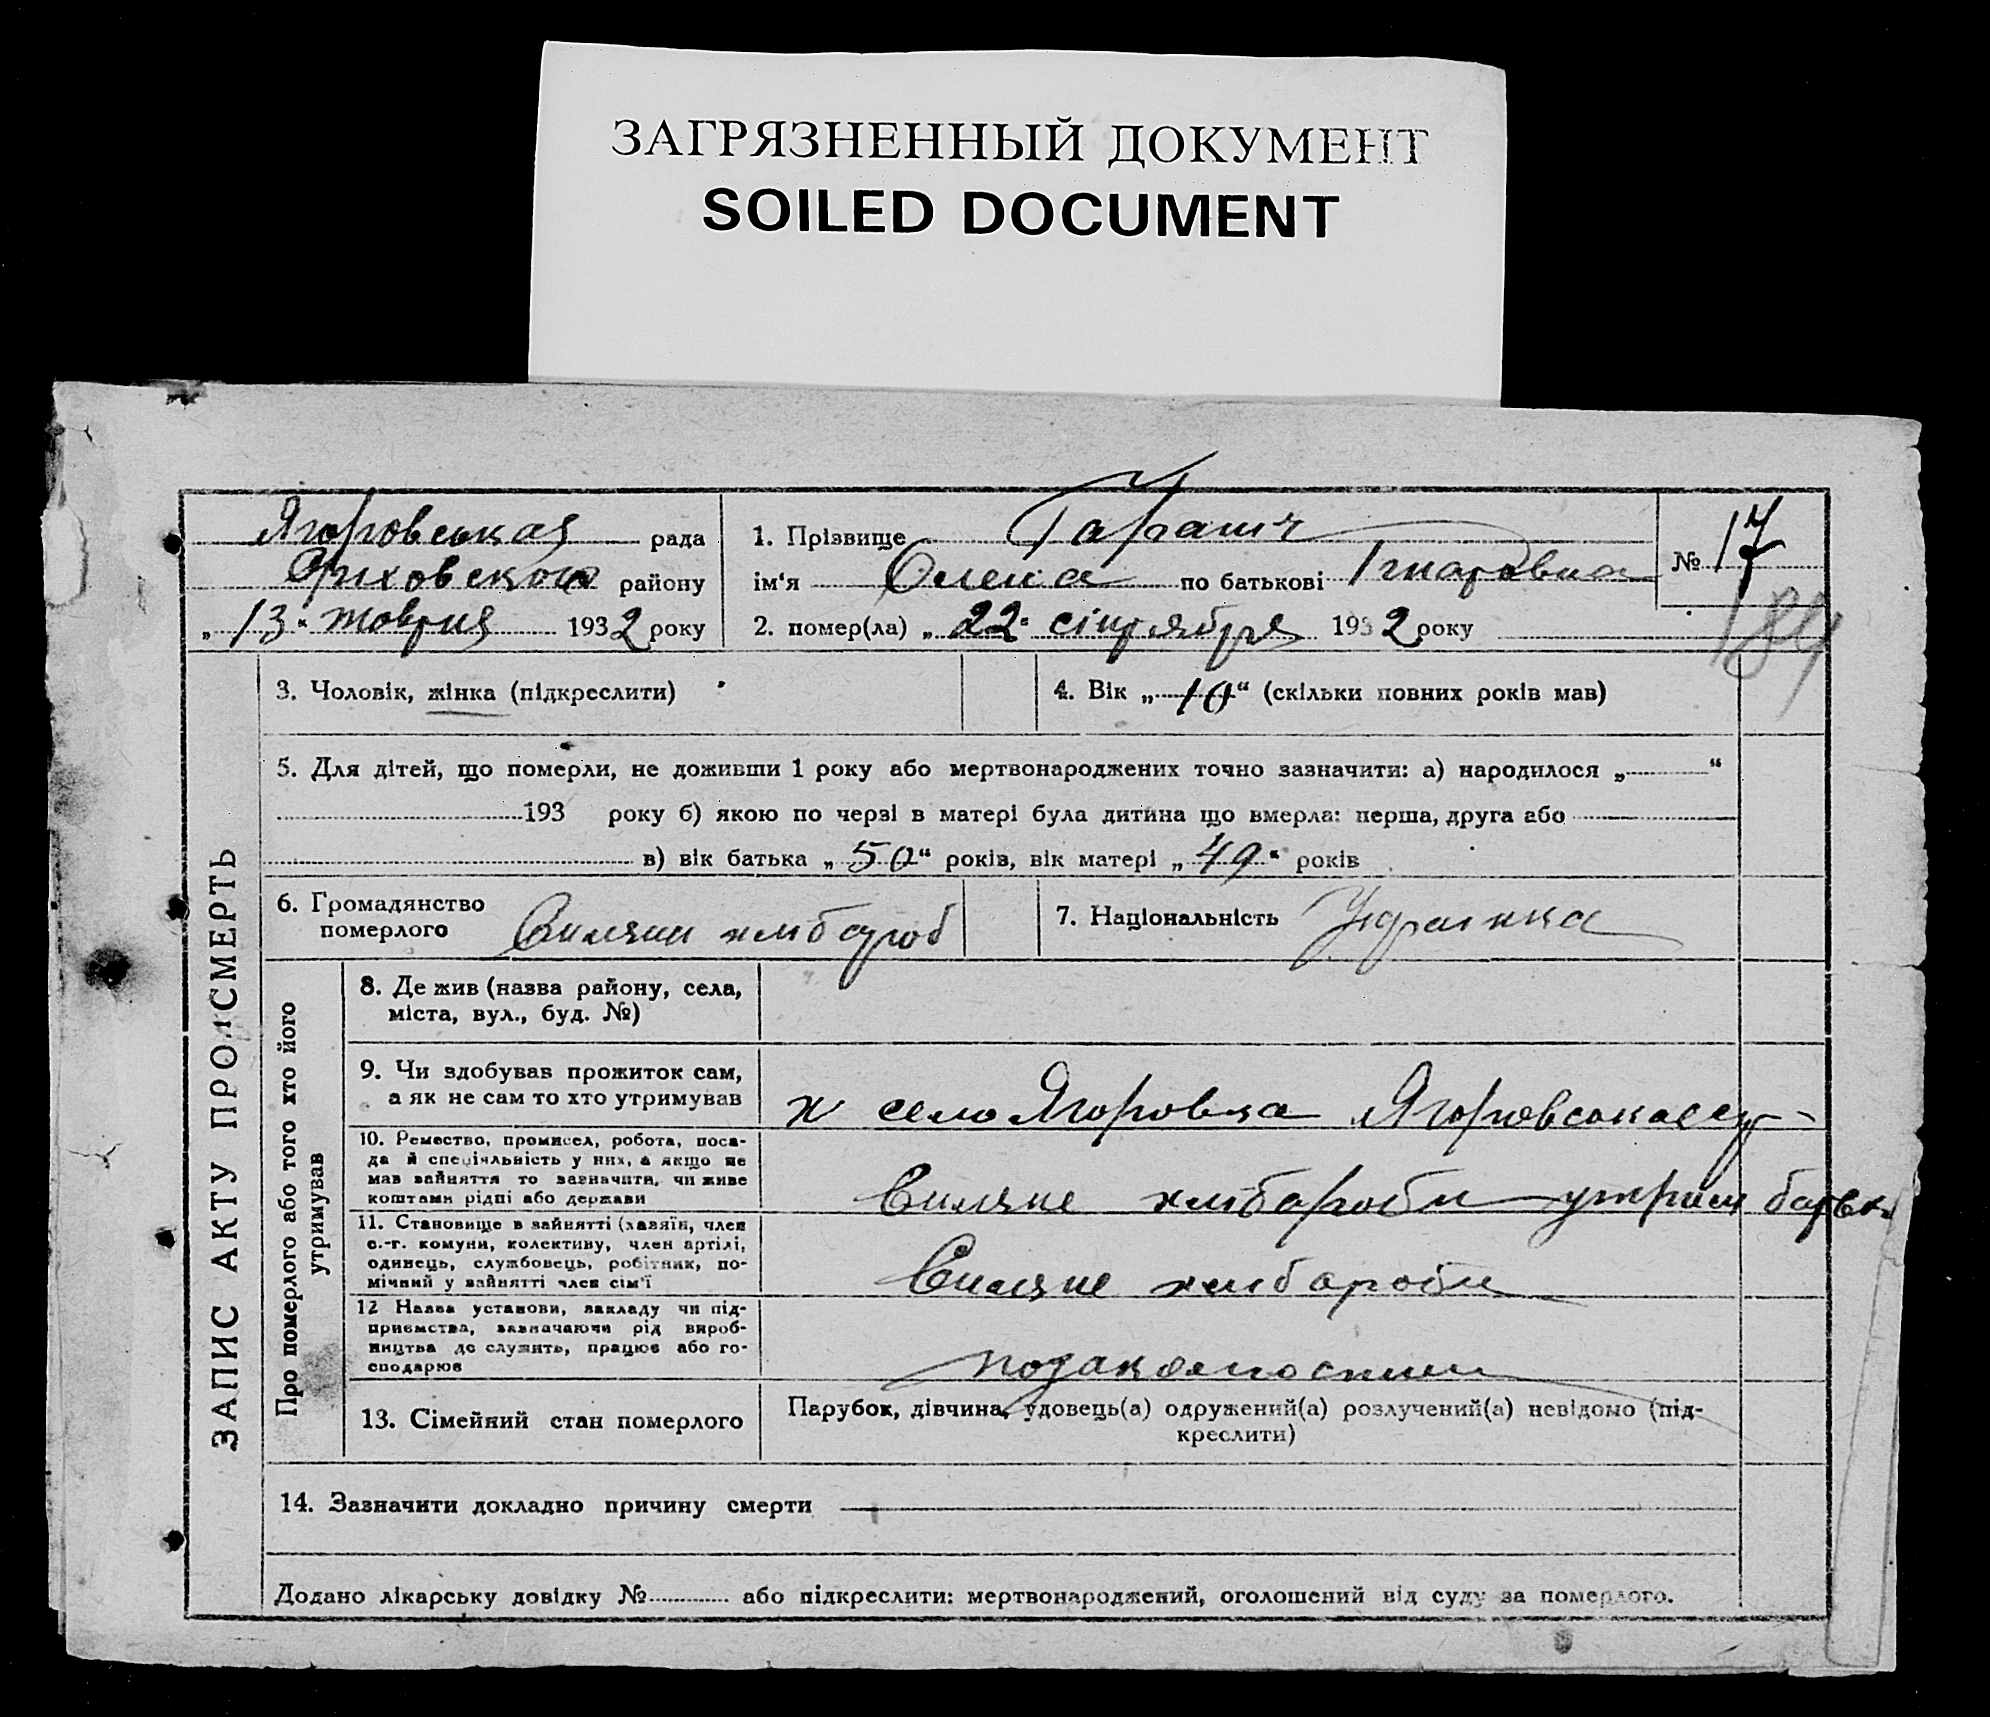 ЗАГРЯЗНЕННЫЙ ДОКУМЕНТ
SOILED DOCUMENT
Ягоровськая рада
району
„13“ жовтня 1932 року
1. Прізвище ГараШч
ім‘я Олена по батькові Ігнатовна
2. помер(ла) „22“ сінтрября 1932 року
№ 17
184
ЗАПИС АКТУ ПРО СМЕРТЬ
3. Чоловік, жінка (підкреслити)
4. Вік „10“ (скільки повних років мав)
5. Для дітей, що померли, не доживши 1 року або мертвонароджених точно зазначити: а) народилося „ “
193 року б) якою по черзі в матері була дитина що вмерла: перша, друга або
в) вік батька „50“ років, вік матері „49“ років
6. Громадянство
померлого
7. Національність Украінка
Про померлого або того хто його
утримував
8. Де жив (назва району, села,
міста, вул., буд. №)
9. Чи здобував прожиток сам,
а як не сам то хто утримував
село Ягоровка
10. Ремество, промисел, робота, поса-
да й спеціяльність у них, а якщо не
мав зайняття то зазначити, чи живе
коштами рідні або держави
11. Становище в зайнятті (хазяїн, член
с.-г. комуни, колективу, член артілі,
одинець, службовець, робітник, по-
мічний у зайнятті член сім'ї
12 Назва установи, закладу чи під-
приємства, зазначаючи рід вироб-
ництва де служить, працює або го-
сподарює
13. Сімейний стан померлого
Парубок, дівчина, удовець(а) одружений(а) розлучений(а) невідомо (під-
креслити)
14. Зазначити докладно причину смерти
Додано лікарську довідку № або підкреслити: мертвонароджений, оголошений від суду за померлого.